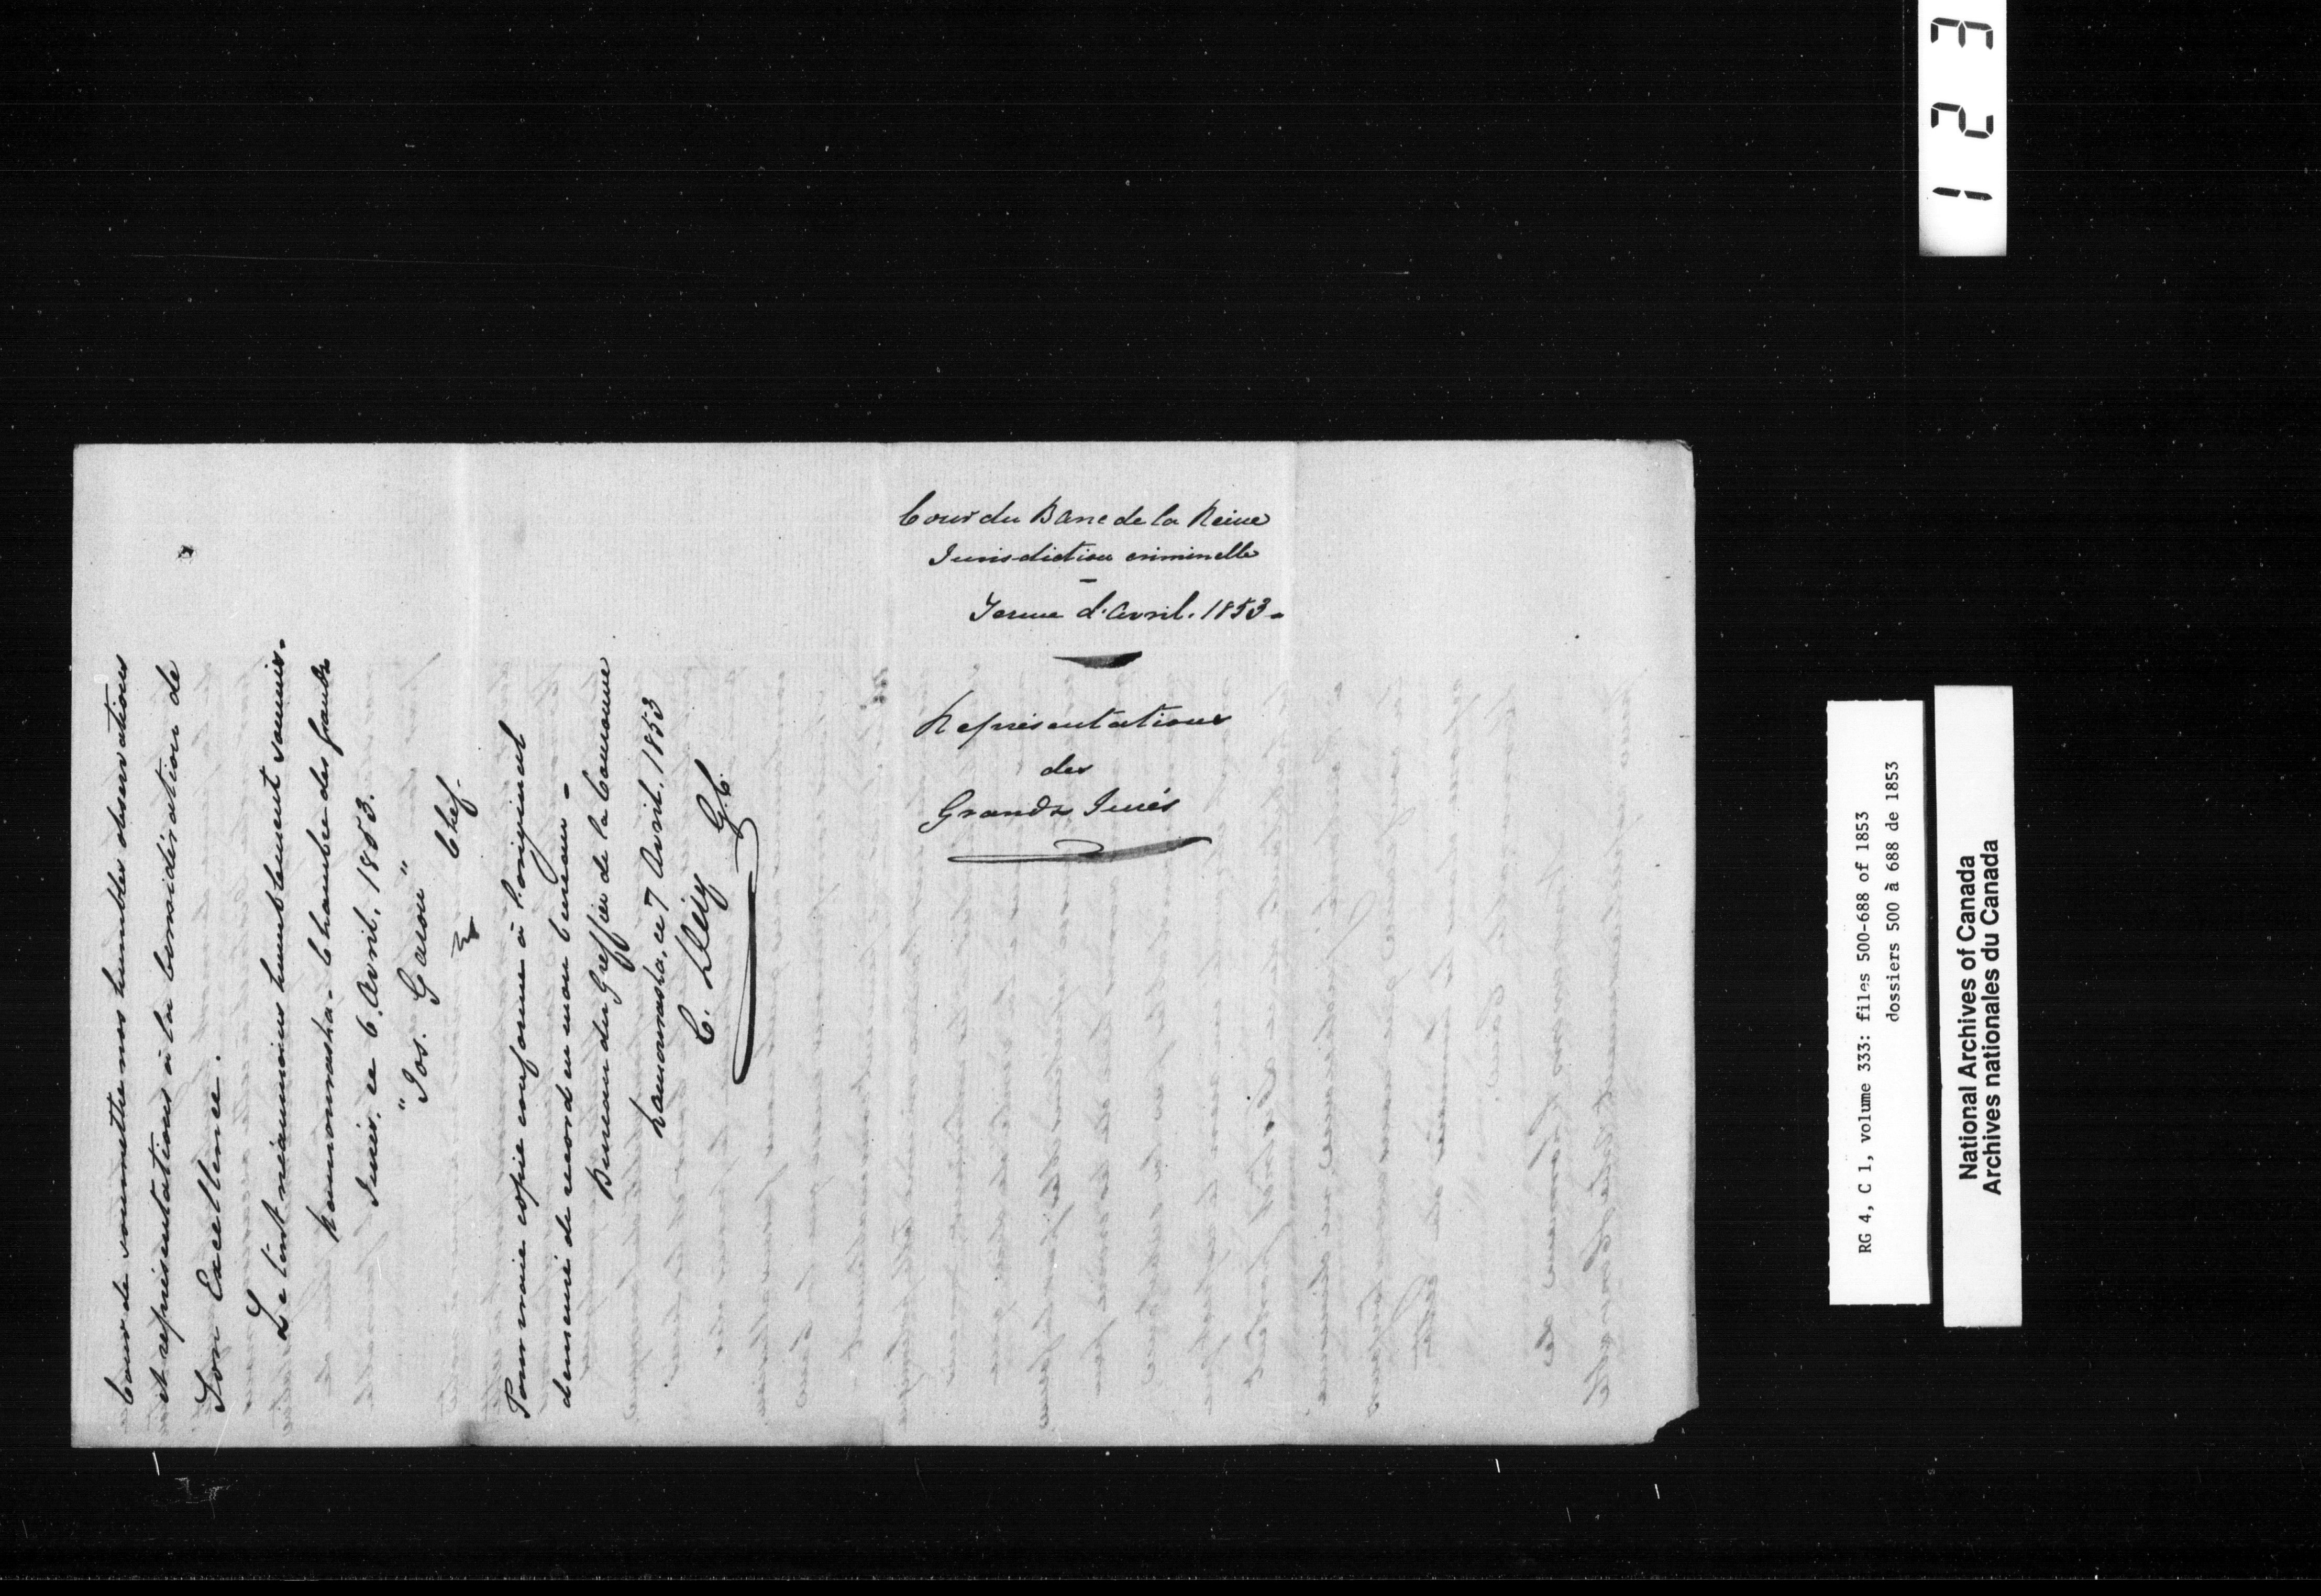 Cour de soumettre nos humbles observations
et représentations à la Considération de
Son Excellence.
Le tout néanmoins humblement soumis.
Kamouraska. Chambre des Grands
Jurés. ce 6. Avril. 1853.
"Jos. Garon"
Chef.
Pour vraie copie conforme à l'original
demeuré de record en mon bureau -
Bureau du Greffier de la Couronne
Kamouraska, ce 7 Avril. 1853
G.C.
Cour du Banc de la Reine
Jurisdiction criminelle
-
Terme d'Avril. 1853 -
Représentations
des
Grands Jurés
1 2 3
RG 4, C 1, volume 333: files 500-688 of 1853
dossiers 500 à 688 de 1853
National Archives of Canada
Archives nationales du Canada